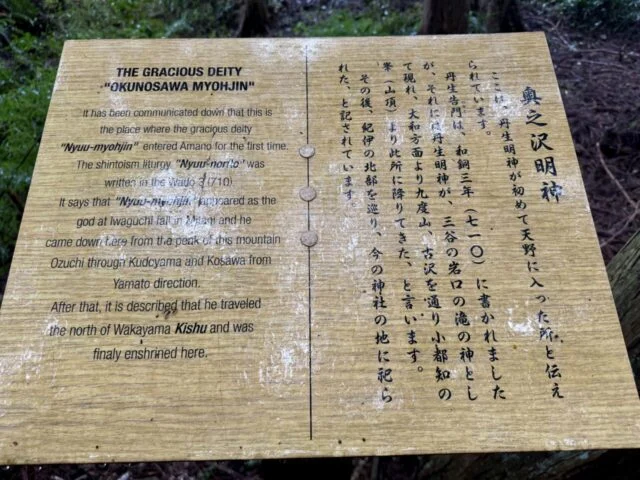 THE GRACIOUS DEITY
"OKUNOSAWA MYOHJIN"
It has been communicated down that this is
the place where the gracious deity
"Nyuu-myohjin" entered Amano for the first time.
The shintoism liturgy "Nyuu-norito" was
written in the Wado 3 (710).
It says that "Nyuu-myohjin" appeared as the
god at Iwaguchi fall in and he
came down here from the peak of this mountain
Ozuchi through Kudoyama and Kosawa from
Yamato direction.
After that, it is described that he traveled
the north of Wakayama Kishu and was
finaly enshrined here.
奥之沢明神
ここは、丹生明神が初めて天野に入った所と伝え
られています。
丹生告門は、和銅三年（七一〇）に書かれました
が、それには丹生明神が、三谷の岩口の滝の神とし
て現れ、大和方面より九度山、古沢を通り小都知の
峯（山頂）より此所に降りてきた、と言います。
その後、紀伊の北部を巡り、今の神社の地に祀ら
れた、と記されています。